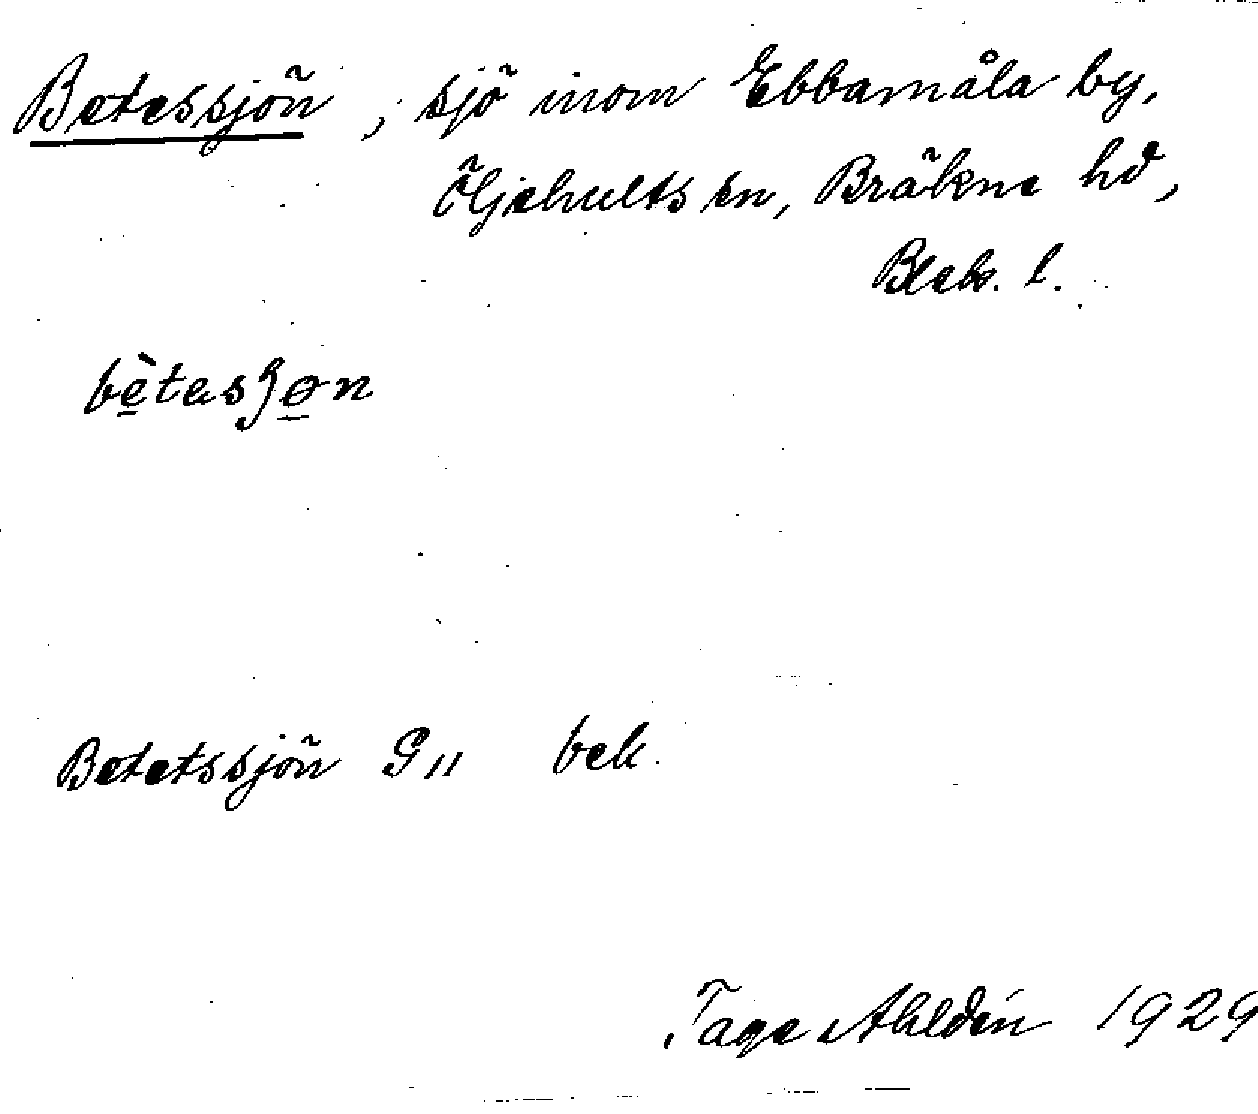 Betessjön, sjö inom Ebbamåla by,
Öljehults sn, Bräkne hd,
Blek. l.
bètasʃøn
Betetssjön G11 bek.
Tage Ahldén 1929